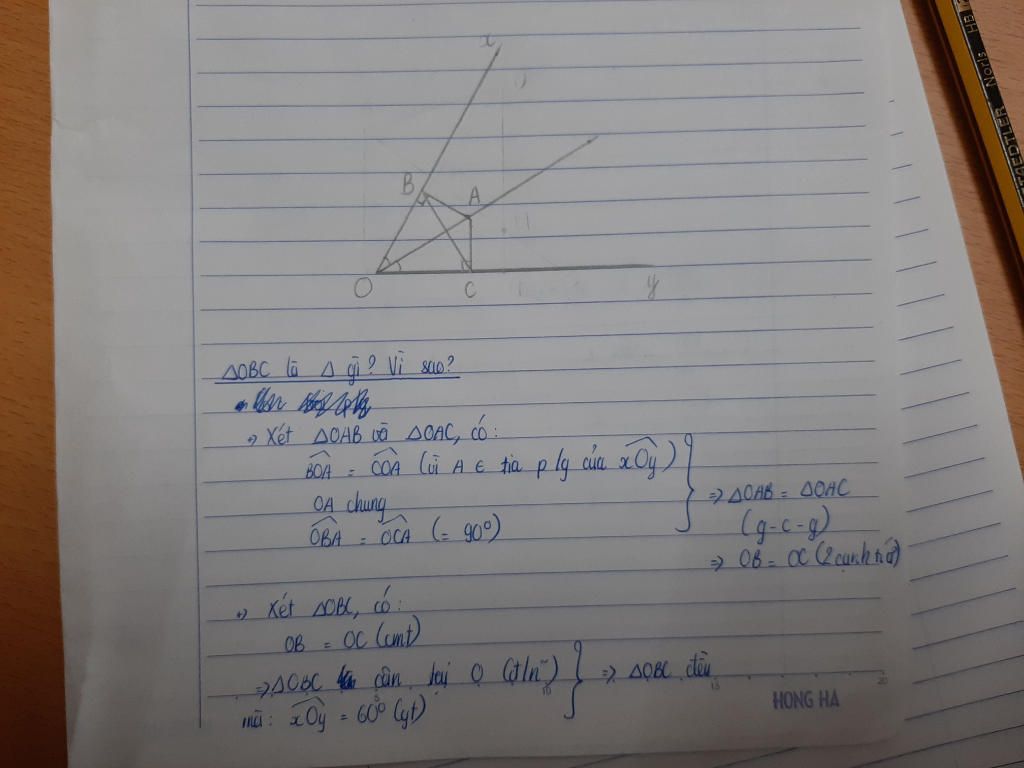 x
B
A
O
C
y
△OBC là △ gì? Vì sao?
→ Xét △OAB và △OAC, có:
BOA = COA (vì A ∈ tia p/g của xOy)
OA chung
OBA = OCA (= 90°)
⇒ △OAB = △OAC
(g-c-g)
⇒ OB = OC (2 cạnh t/ứ)
→ Xét △OBC, có:
OB = OC (cmt)
⇒ △OBC cân tại O (đ/n)
mà: xOy = 60° (gt)
⇒ △OBC đều
HONG HA
STAEDTLER Noris HB